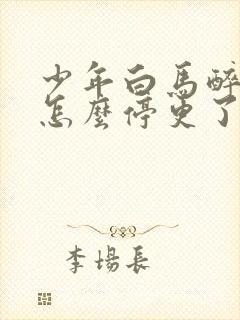 少年白馬醉
怎麼停更了
李場長